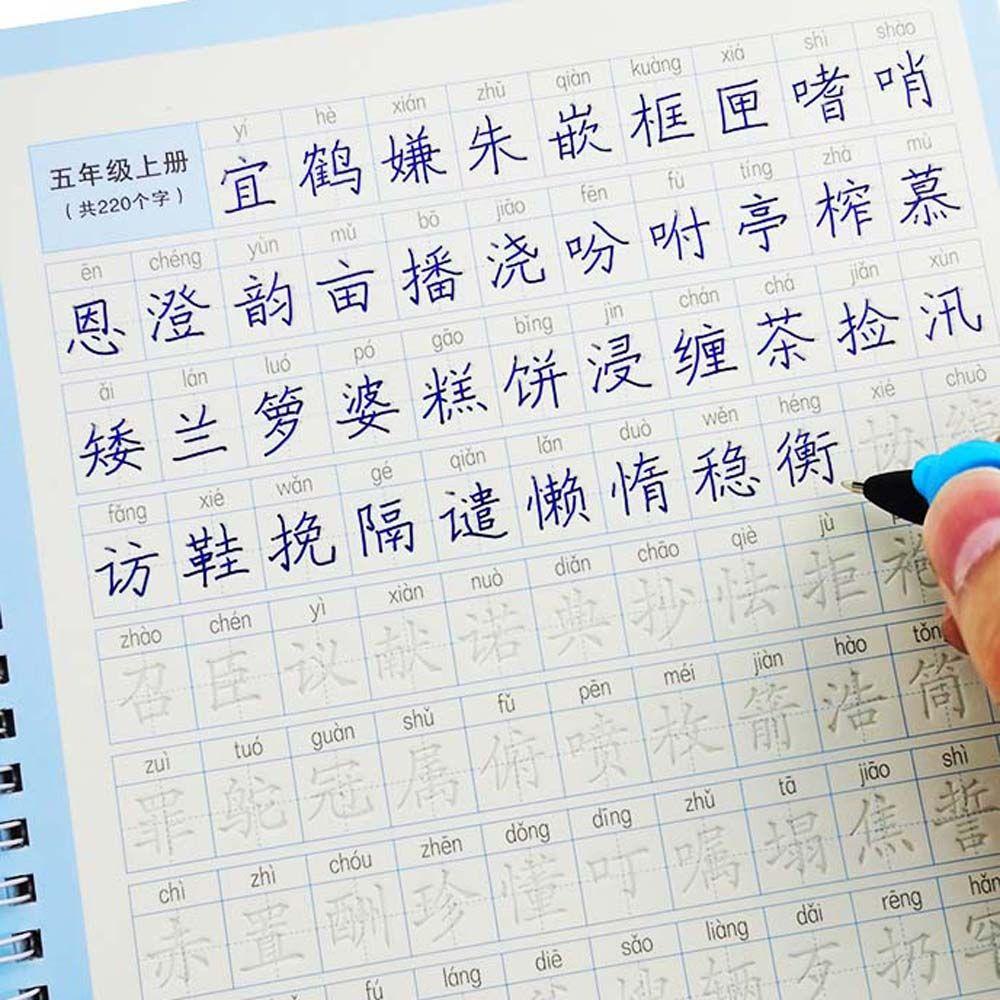 yí hè xián zhū qiàn kuàng xiá shì shào
五年级上册 宜 鹤 嫌 朱 嵌 框 匣 嗜 哨
(共220个字)
ēn chéng yùn mǔ bō jiāo fēn fù tíng zhà mù
恩 澄 韵 亩 播 浇 吩 咐 亭 榨 慕
ǎi lán luó pó gāo bǐng jìn chán chá jiǎn xùn
矮 兰 箩 婆 糕 饼 浸 缠 茶 捡 汛
fǎng xié wǎn gé qiǎn lǎn duò wěn héng xié chuò
访 鞋 挽 隔 谴 懒 惰 稳 衡 协
zhào chén yì xiàn nuò diǎn chāo qiè jù
召 臣 议 献 诺 典 抄 怯 拒 袍
zuì tuó guàn shǔ fǔ pēn méi jiàn hào
罪 鸵 冠 属 俯 喷 枚 箭 浩 筒
chì zhì chóu zhēn dǒng dīng zhǔ tā jiāo shì
赤 置 酬 珍 懂 叮 嘱 塌 焦 誓
fú láng diē sǎo liàng dǎi rēng hǎn
辆 歹 扔 罕